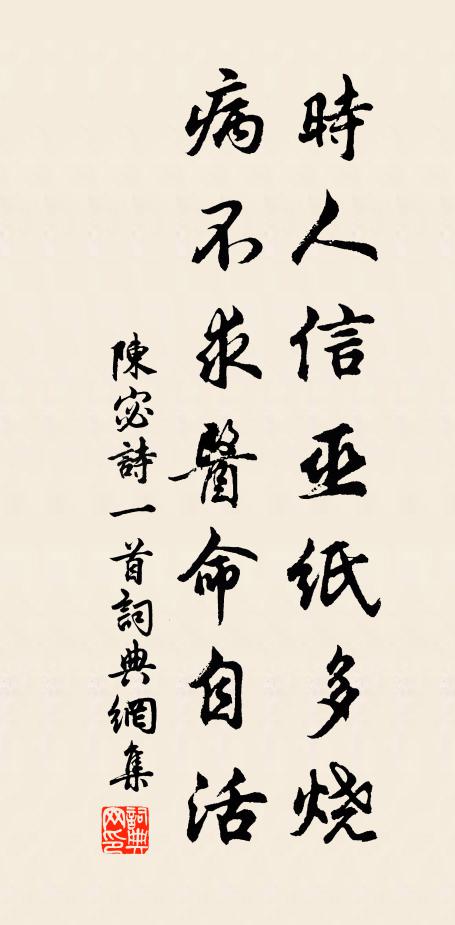 時人信巫紙多燒
病不求醫命自活
陳宓詩一首詞典網集
詞典网印